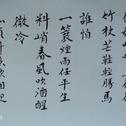 竹杖芒鞋輕勝馬
誰怕
一蓑煙雨任平生
料峭春風吹酒醒
微冷
山頭斜照